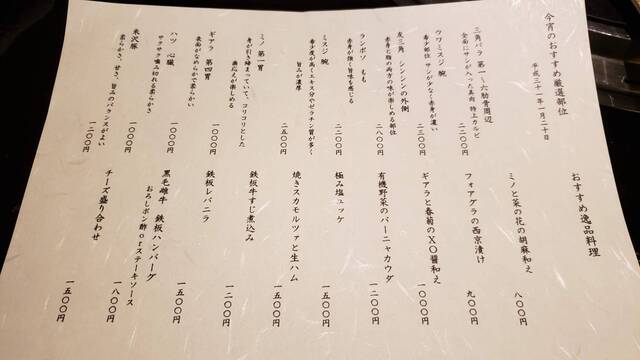 今宵のおすすめ厳選部位
平成三十一年一月二十日
三角バラ 第一～六肋骨周辺
全面にサシが入った美肉 特上カルビ
二二〇〇円
ウワミスジ 腕
希少部位 サシが少なく赤身が濃い
二三〇〇円
友三角 シンシンの外側
赤身と脂の両方の味が楽しめる部位
二八〇〇円
ランボソ もも
赤身が強く旨味を感じる
二二〇〇円
ミスジ 腕
希少度が高くエキス分やゼラチン質が多く
旨みが濃厚
二五〇〇円
ミノ 第一胃
身が引き締まっていて、コリコリとした
歯応えが楽しめる
一〇〇〇円
ギアラ 第四胃
表面がなめらかで柔らかい
一〇〇〇円
ハツ 心臓
サクサク噛み切れる柔らかさ
一〇〇〇円
米沢豚
柔らかさ、甘さ、旨みのバランスがよい
一二〇〇円
おすすめ逸品料理
ミノと菜の花の胡麻和え
八〇〇円
フォアグラの西京漬け
九〇〇円
ギアラと春菊のXO醤和え
一〇〇〇円
有機野菜のバーニャカウダ
一二〇〇円
極み塩ユッケ
一五〇〇円
焼きスカモルツァと生ハム
一五〇〇円
鉄板牛すじ煮込み
一二〇〇円
鉄板レバニラ
一五〇〇円
黒毛雌牛 鉄板ハンバーグ
おろしポン酢orステーキソース
一八〇〇円
チーズ盛り合わせ
一五〇〇円